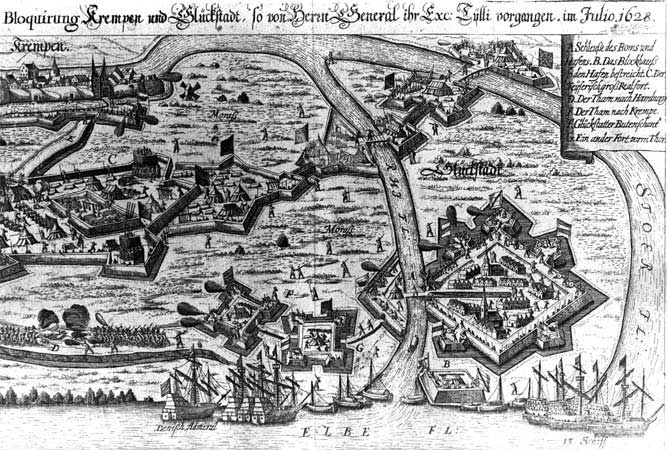 Bloquirung Krempen und Glückstadt, so von Herrn General ihr Exc: Tylli vorgangen. im Julio, 1628.
Krempen.
A. Schleuße des Boms und
Hafens, B. Das Blockhauß
so den Hafen bestreicht. C. Der
Keiserisch groß Realfort.
D. Der Tham nach Hamburg
E. Der Tham nach Krempe
F. Glückstatter Butenschantz
G. Ein ander Fort vorm Thor
Moraß
C
Glückstadt
STOER FL:
Moraß
F
D
G
B
Denisch Admiral
ELBE FL:
13 Schiff